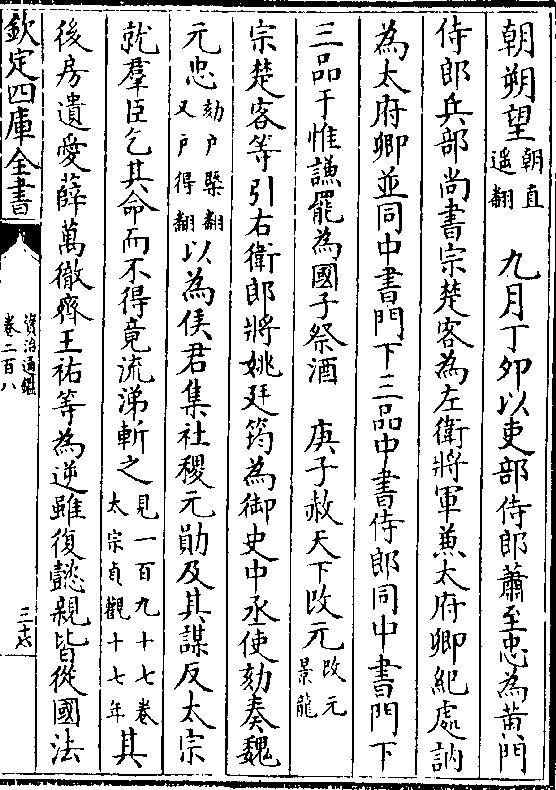 朝朔望朝直遥翻　九月丁夘以吏部侍郎蕭至忠為黄門
侍郎兵部尚書宗楚客為左衛將軍兼太府卿紀處訥
為太府卿並同中書門下三品中書侍郎同中書門下
三品于惟謙罷為國子祭酒　庚子赦天下改元改元景龍
宗楚客等引右衛郎將姚廷筠為御史中丞使劾奏魏
元忠劾户槩翻又户得翻以為侯君集社稷元勛及其謀反太宗
就羣臣乞其命而不得竟流涕斬之見一百九十七卷太宗貞觀十七年其
後房遺愛薛萬徹齊王祐等為逆雖復懿親皆從國法
欽定四庫全書
資治通鑑
卷二百八